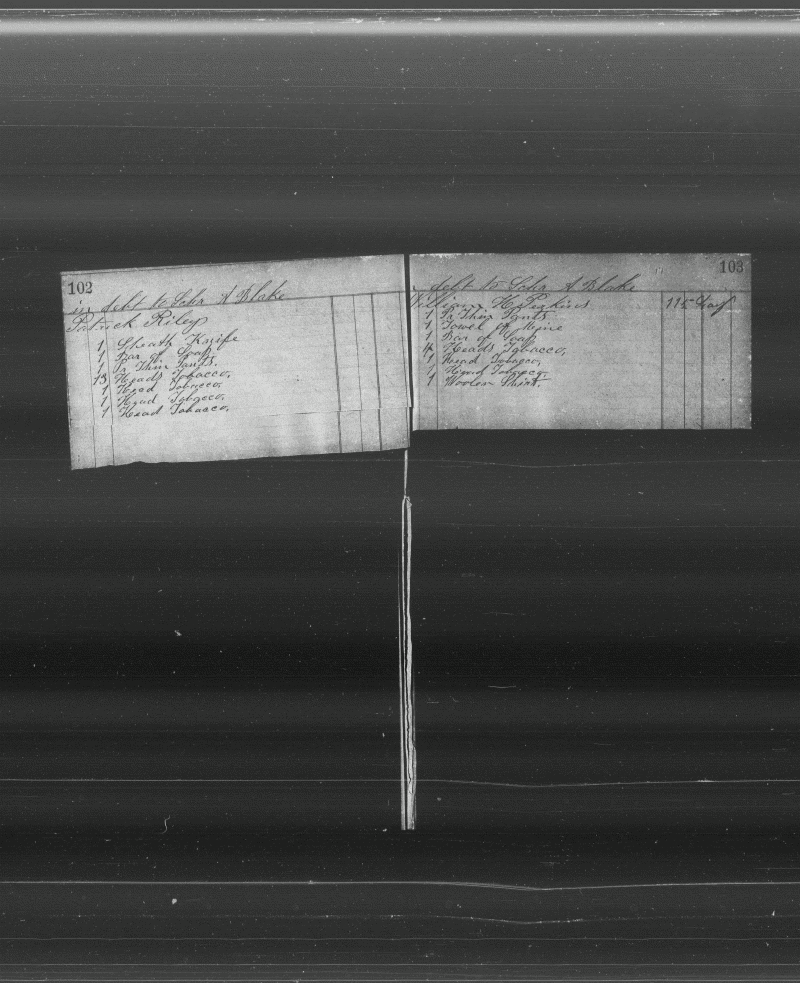 102
in debt to Schr A Blake
Patrick Riley
1 Sheath Knife
1 Bar of Soap
1 Pr Thin Pants.
13 Heads Tobacco,
1 Head Tobacco,
1 Head Tobacco,
1 Head Tobacco,
103
debt to Schr A Blake
William H Perkins 115 Lay
1 Pr Thin Pants
1 Towel of Mine
1 Bar of Soap
4 Heads Tobacco,
1 Head Tobacco,
1 Head Tobacco,
1 Woolen Shirt.